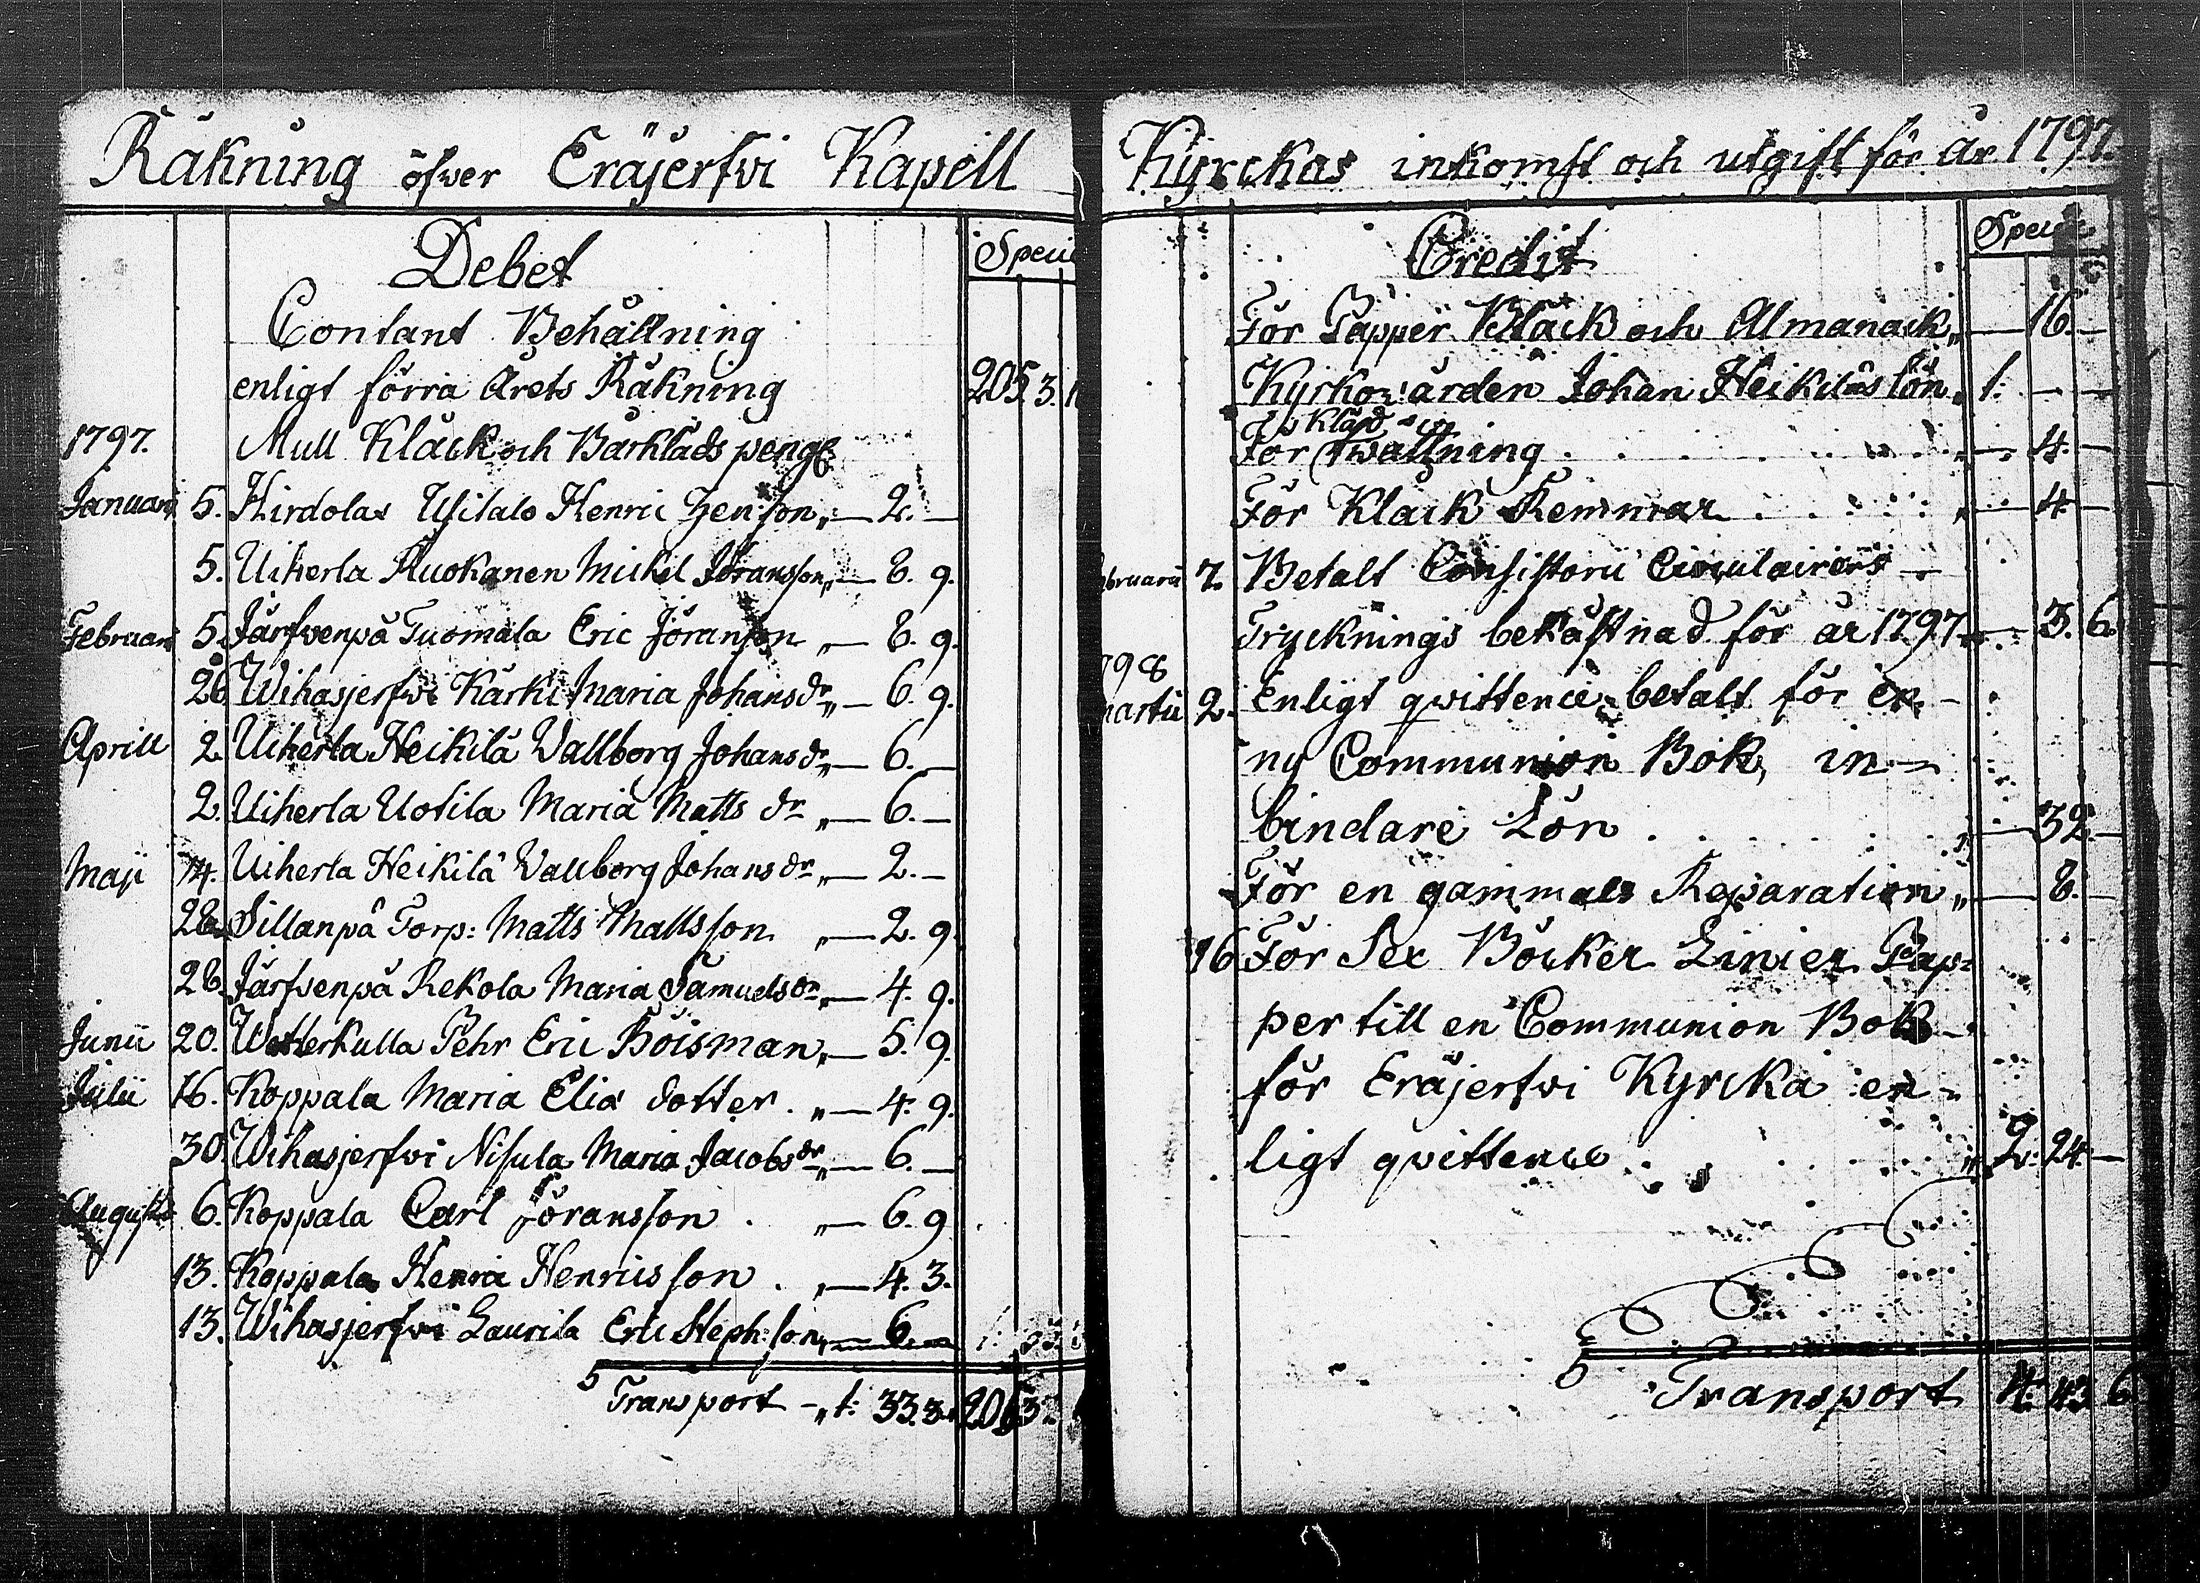 Räkning öfver Eräjerfvi Kapell
Debet
Speci
Contant Behållning
enligt förra Årets Räkning 205. 3.
1797. Mull Klåck och Bårklåds peng:
Januari 5. Hirdola Ylitalo Henric Hen:son „ — 2. —
5. Uiherla Ruokanen Mickel Jöransson „ — 8. 9.
Februari 5. Järfvenpä Tuomala Eric Jöranson „ — 8. 9.
26. Wihasjerfvi Kärki Maria Johansdr „ — 6. 9.
Aprill 2. Uiherla Heikilä Vallborg Johansdr „ — 6. —
2. Uiherla Uotila Maria Matts dr „ — 6. —
Maji 14. Uiherla Heikilä Vallborg Johansdr „ — 2. —
28. Sillanpä Torp: Matts Mattsson „ — 2. 9.
28. Järfvenpä Rekola Maria Samuelsdr „ — 4. 9.
Junii 20. Wetterkulla Pehr Eric Boisman „ — 5. 9.
Julii 16. Koppala Maria Elia dotter. „ — 4. 9.
30. Wihasjerfvi Nisula Maria Jacobsdr „ — 6. —
Augusti 6. Koppala Carl Jöransson . „ — 6. 9
13. Koppala Henric Henricsson . „ — 4. 3.
13. Wihasjerfvi Laurila Eric Steph:son „ — 6. —
Transport - „ 1: 33. 3. 206
Kyrckas inkomst och utgift för År 1797.
Credit
Speci
För Papper Bläck och Almanack „ — 16. —
Kyrkovärden Johan Heikiläs lön „ 1: — —
Kläd
För Twättning . . . . „ — 4. —
För Klåck Remmar . . . . „ — 4 —
bruarii 7. Betalt Consistorii Circulairers
Trycknings bekåstnad för år 1797 „ — 3. 6.
798
artii 2. Enligt qvittence betalt för en
ny Communion Bok, in-
bindare Lön . . . . „ — 32. —
För en gammals Reparation „ — 8. —
16. För Sex Böcker Linier Pap-
per till en Communion Bok
för Eräjerfvi Kyrcka en-
ligt qvittence . . . . „ 2: 24. —
Transport 4: 43. 6